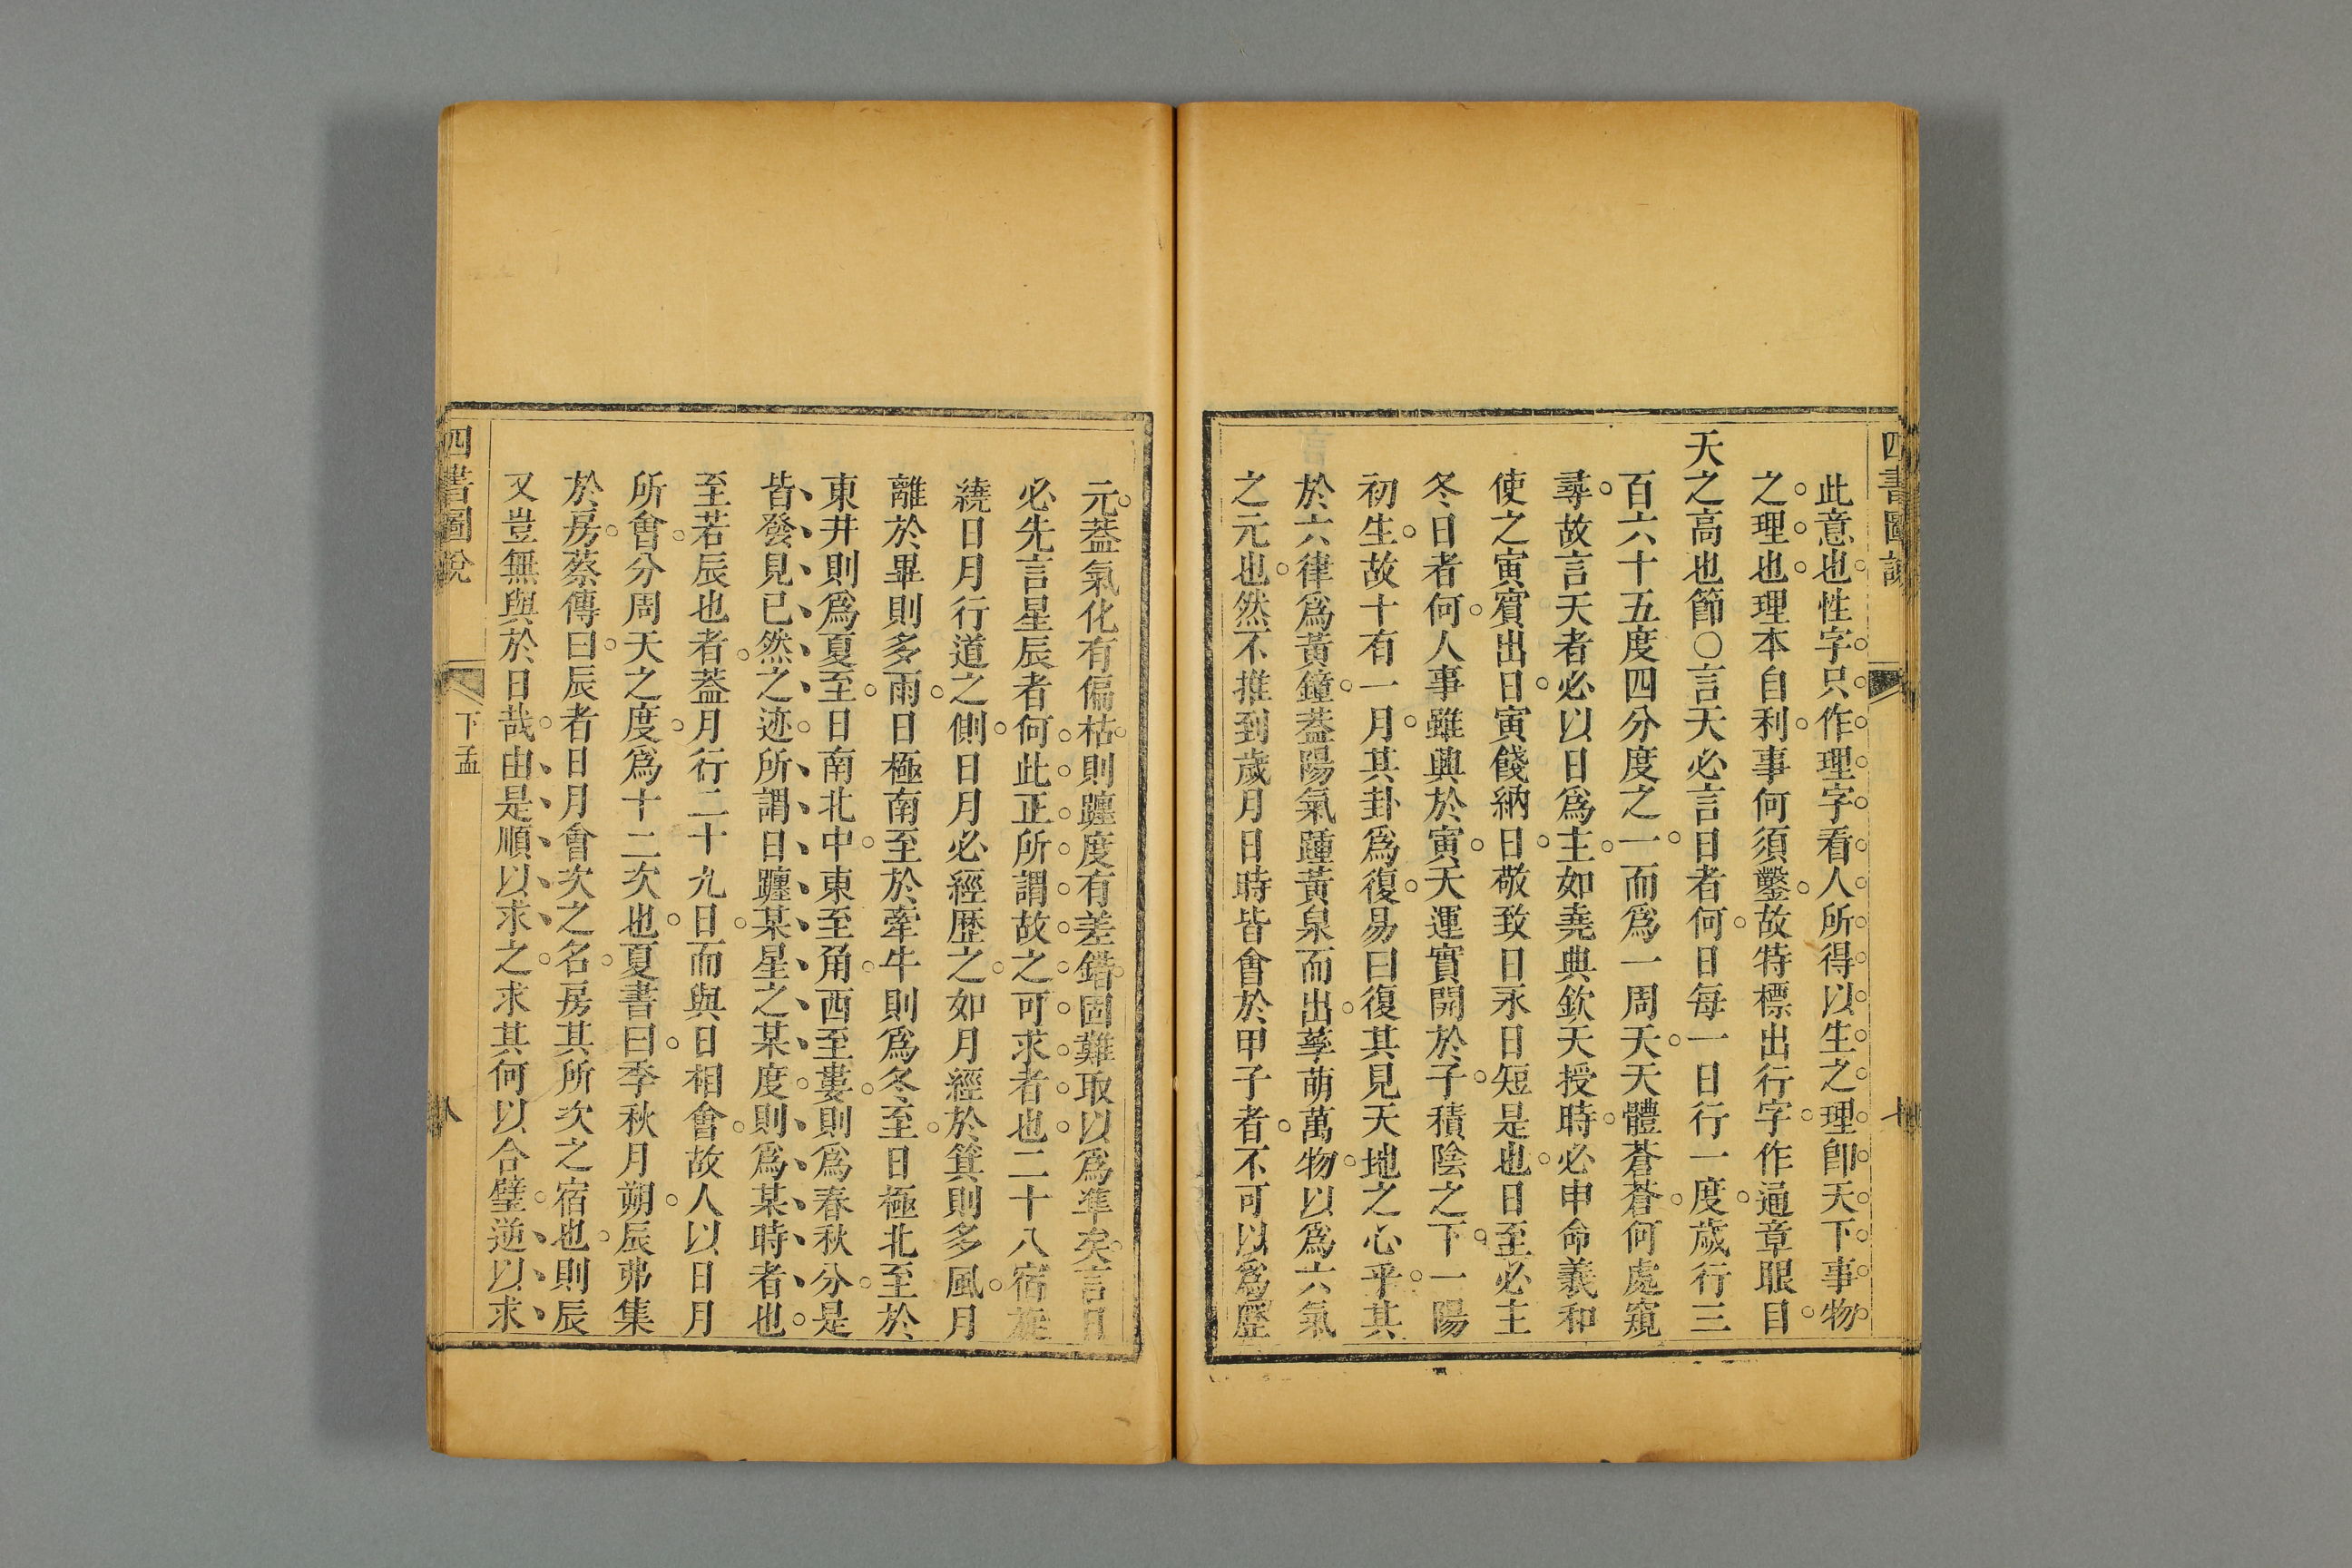 四書圖說
七
此意也性字只作理字看人所得以生之理卽天下事物
之理也理本自利事何須鑿故特標出行字作通章眼目
天之高也節○言天必言日者何日每一日行一度歲行三
百六十五度四分度之一而爲一周天天體蒼蒼何處窺
尋故言天者必以日爲主如堯典欽天授時必申命羲和
使之寅賓出日寅餞納日敬致日永日短是也日至必主
冬日者何人事雖興於寅天運實開於子積陰之下一陽
初生故十有一月其卦爲復易曰復其見天地之心乎其
於六律爲黃鐘葢陽氣踵黃泉而出孳萌萬物以爲六氣
之元也然不推到歲月日時皆會於甲子者不可以爲歷
元葢氣化有偏枯則躔度有差錯固難取以爲準矣言日
必先言星辰者何此正所謂故之可求者也二十八宿旋
繞日月行道之側日月必經歷之如月經於箕則多風月
離於畢則多雨日極南至於牽牛則爲冬至日極北至於
東井則爲夏至日南北中東至角西至婁則爲春秋分是
皆發見已然之迹所謂日躔某星之某度則爲某時者也
至若辰也者葢月行二十九日而與日相會故人以日月
所會分周天之度爲十二次也夏書曰季秋月朔辰弗集
於房蔡傳曰辰者日月會次之名房其所次之宿也則辰
又豈無與於日哉由是順以求之求其何以合璧逆以求
四書圖說
下孟
八